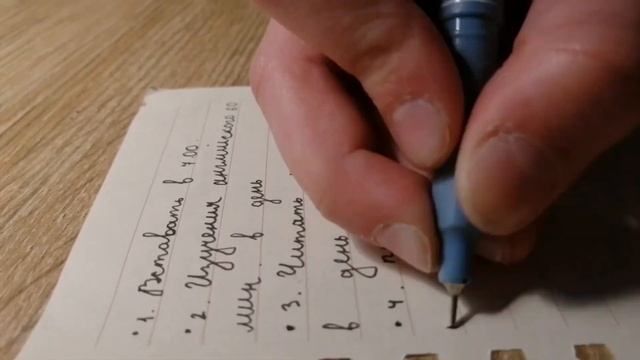 • 1. Вставать в 7.00.
• 2. Изучения английского 60
мин. в день
• 3. Читать
в день
• 4.